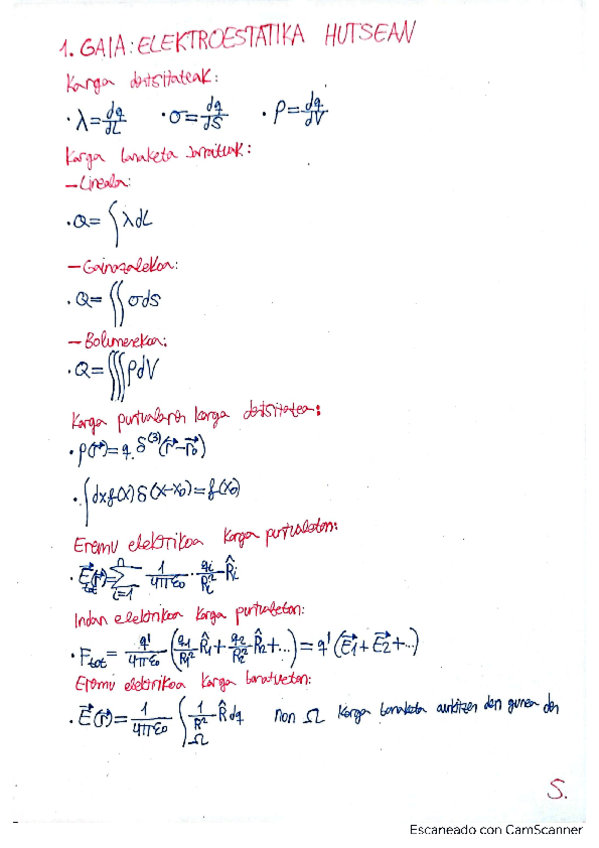 1. GAIA: ELEKTROESTATIKA HUTSEAN
Karga dentsitateak:
· λ = dq/dL · σ = dq/dS · ρ = dq/dV
Karga banaketa jarraituak:
- Lineala:
· Q = ∫ λdL
- Gainazalekoa:
· Q = ∬ σdS
- Bolumenekoa:
· Q = ∭ ρdV
Karga puntualaren karga dentsitatea:
· ρ(r⃗) = q · δ⁽³⁾(r⃗ - r⃗₀)
· ∫ dx f(x) δ(x-x₀) = f(x₀)
Eremu elektrikoa karga puntualetan:
· E⃗tot(r⃗) = Σᵢ₌₁ⁿ 1/4πε₀ · qᵢ/Rᵢ² · R̂ᵢ
Indar elektrikoa karga puntualetan:
· Ftot = q'/4πε₀ (q₁/R₁² R̂₁ + q₂/R₂² R̂₂ + ...) = q' (E⃗₁ + E⃗₂ + ...)
Eremu elektrikoa karga banatuetan:
· E⃗(r⃗) = 1/4πε₀ ∫Ω 1/R² R̂ dq non Ω karga banaketa aurkitzen den gunea den
S.
Escaneado con CamScanner